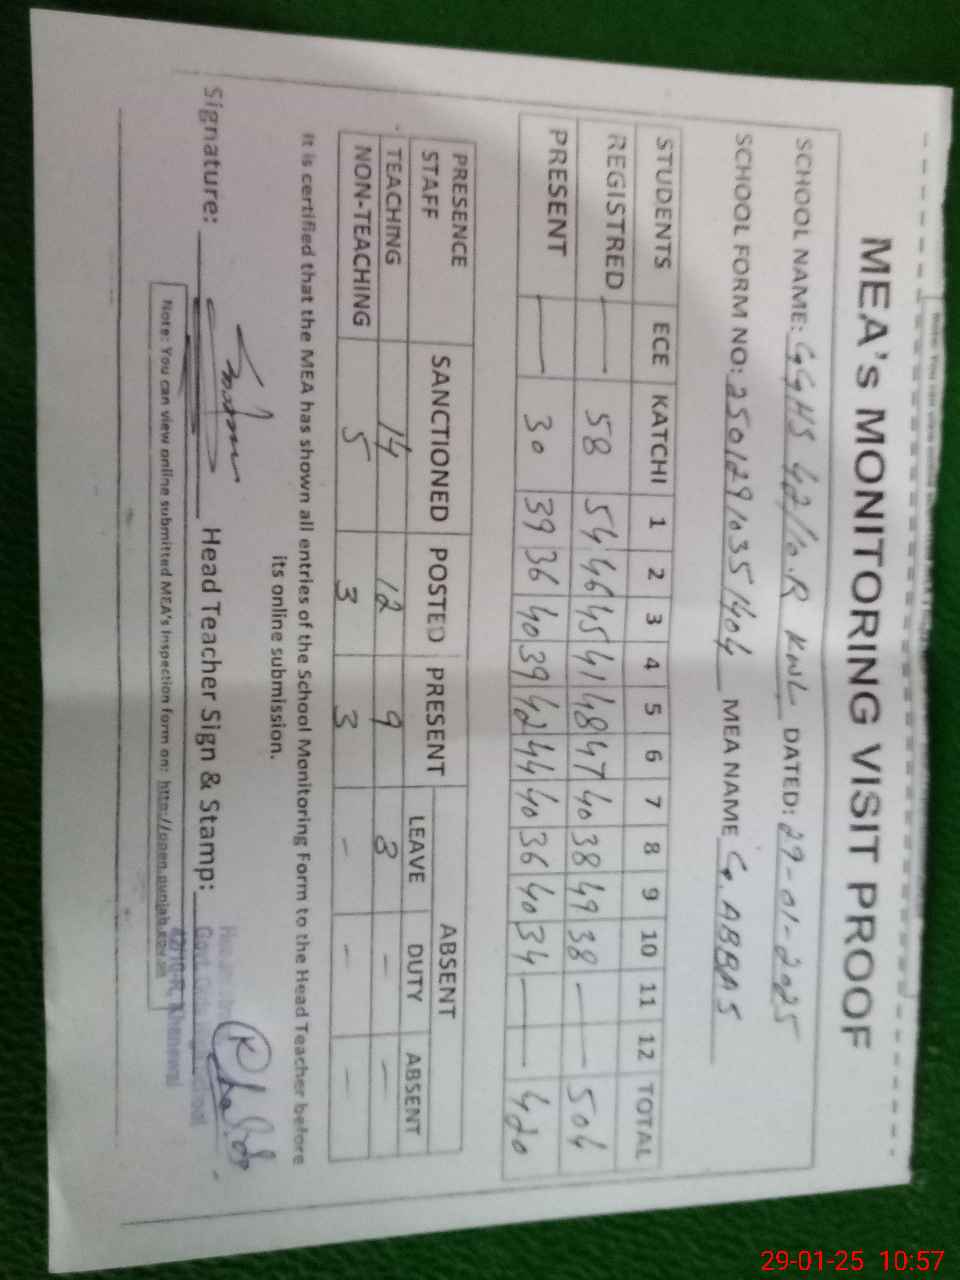 MEA's MONITORING VISIT PROOF
SCHOOL NAME: GGHS 42/10.R KWL DATED: 29-01-2025
SCHOOL FORM NO: 25012910351404 MEA NAME G. ABBAS
STUDENTS ECE KATCHI 1 2 3 4 5 6 7 8 9 10 11 12 TOTAL
REGISTRED — 58 54 46 45 41 48 47 40 38 49 38 — — 504
PRESENT — 30 39 36 40 39 42 44 40 36 40 34 — — 420
PRESENCE STAFF SANCTIONED POSTED PRESENT ABSENT
LEAVE DUTY ABSENT
TEACHING 14 12 9 3 — —
NON-TEACHING 5 3 3 — — —
It is certified that the MEA has shown all entries of the School Monitoring Form to the Head Teacher before
its online submission.
Signature: Head Teacher Sign & Stamp:
42/10-R, Khanewal
Note: You can view online submitted MEA's Inspection form on: http://open.punjab.gov.pk
29-01-25 10:57